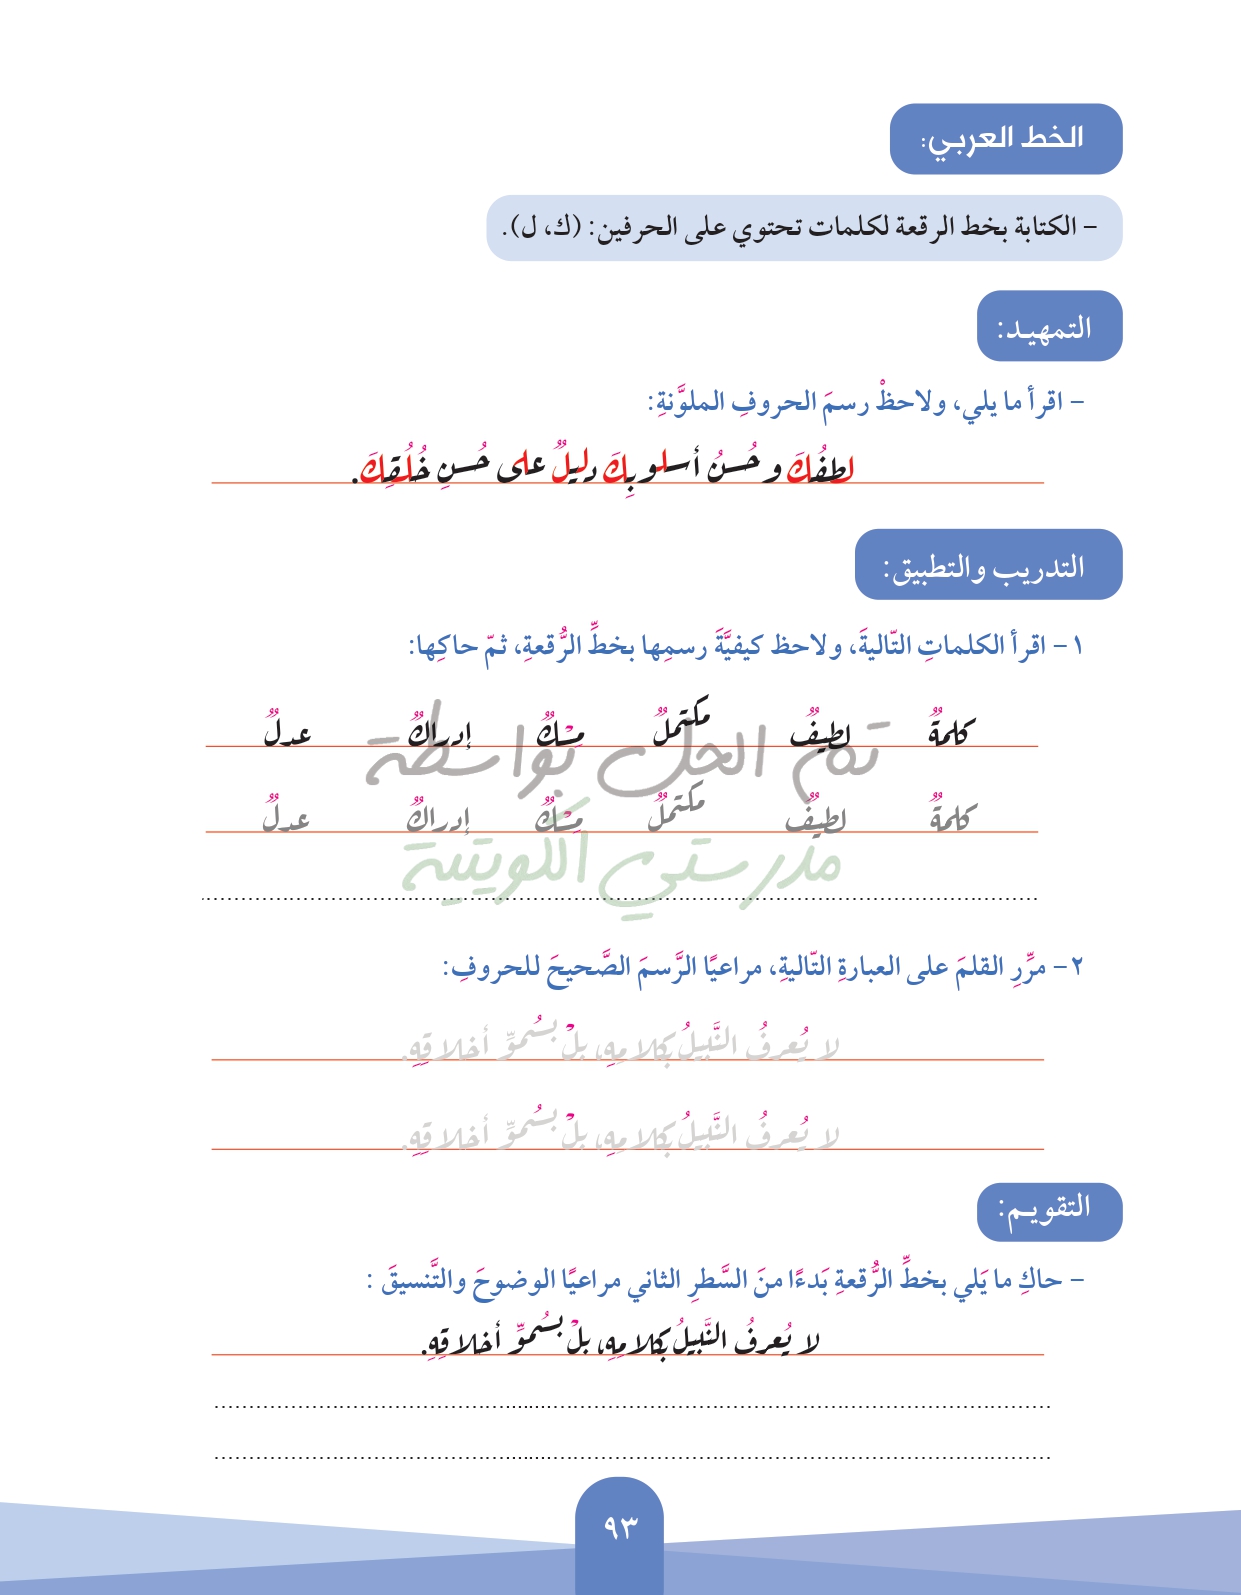 الخط العربي:
- الكتابة بخط الرقعة لكلمات تحتوي على الحرفين: (ك، ل).
التمهيـد:
- اقرأ ما يلي، ولاحظْ رسمَ الحروفِ الملوَّنةِ:
لطفُكَ وحُسنُ أسلوبِكَ دليلٌ على حُسنِ خُلُقِكَ.
التدريب والتطبيق:
١- اقرأ الكلماتِ التّاليةَ، ولاحظ كيفيَّةَ رسمِها بخطِّ الرُّقعةِ، ثمّ حاكِها:
كلمةٌ لطيفٌ مكتملٌ مِسْكٌ إدراكٌ عدلٌ
تم الحل بواسطة
كلمةٌ لطيفٌ مكتملٌ مِسْكٌ إدراكٌ عدلٌ
مدرستي الكويتية
٢- مرِّرِ القلمَ على العبارةِ التّاليةِ، مراعيًا الرَّسمَ الصَّحيحَ للحروفِ:
لا يُعرفُ النَّبيلُ بكلامِهِ، بلْ بسُموِّ أخلاقِهِ.
لا يُعرفُ النَّبيلُ بكلامِهِ، بلْ بسُموِّ أخلاقِهِ.
التقويـم:
- حاكِ ما يَلي بخطِّ الرُّقعةِ بَدءًا منَ السَّطرِ الثاني مراعيًا الوضوحَ والتَّنسيقَ :
لا يُعرفُ النَّبيلُ بكلامِهِ، بلْ بسُموِّ أخلاقِهِ.
٩٣